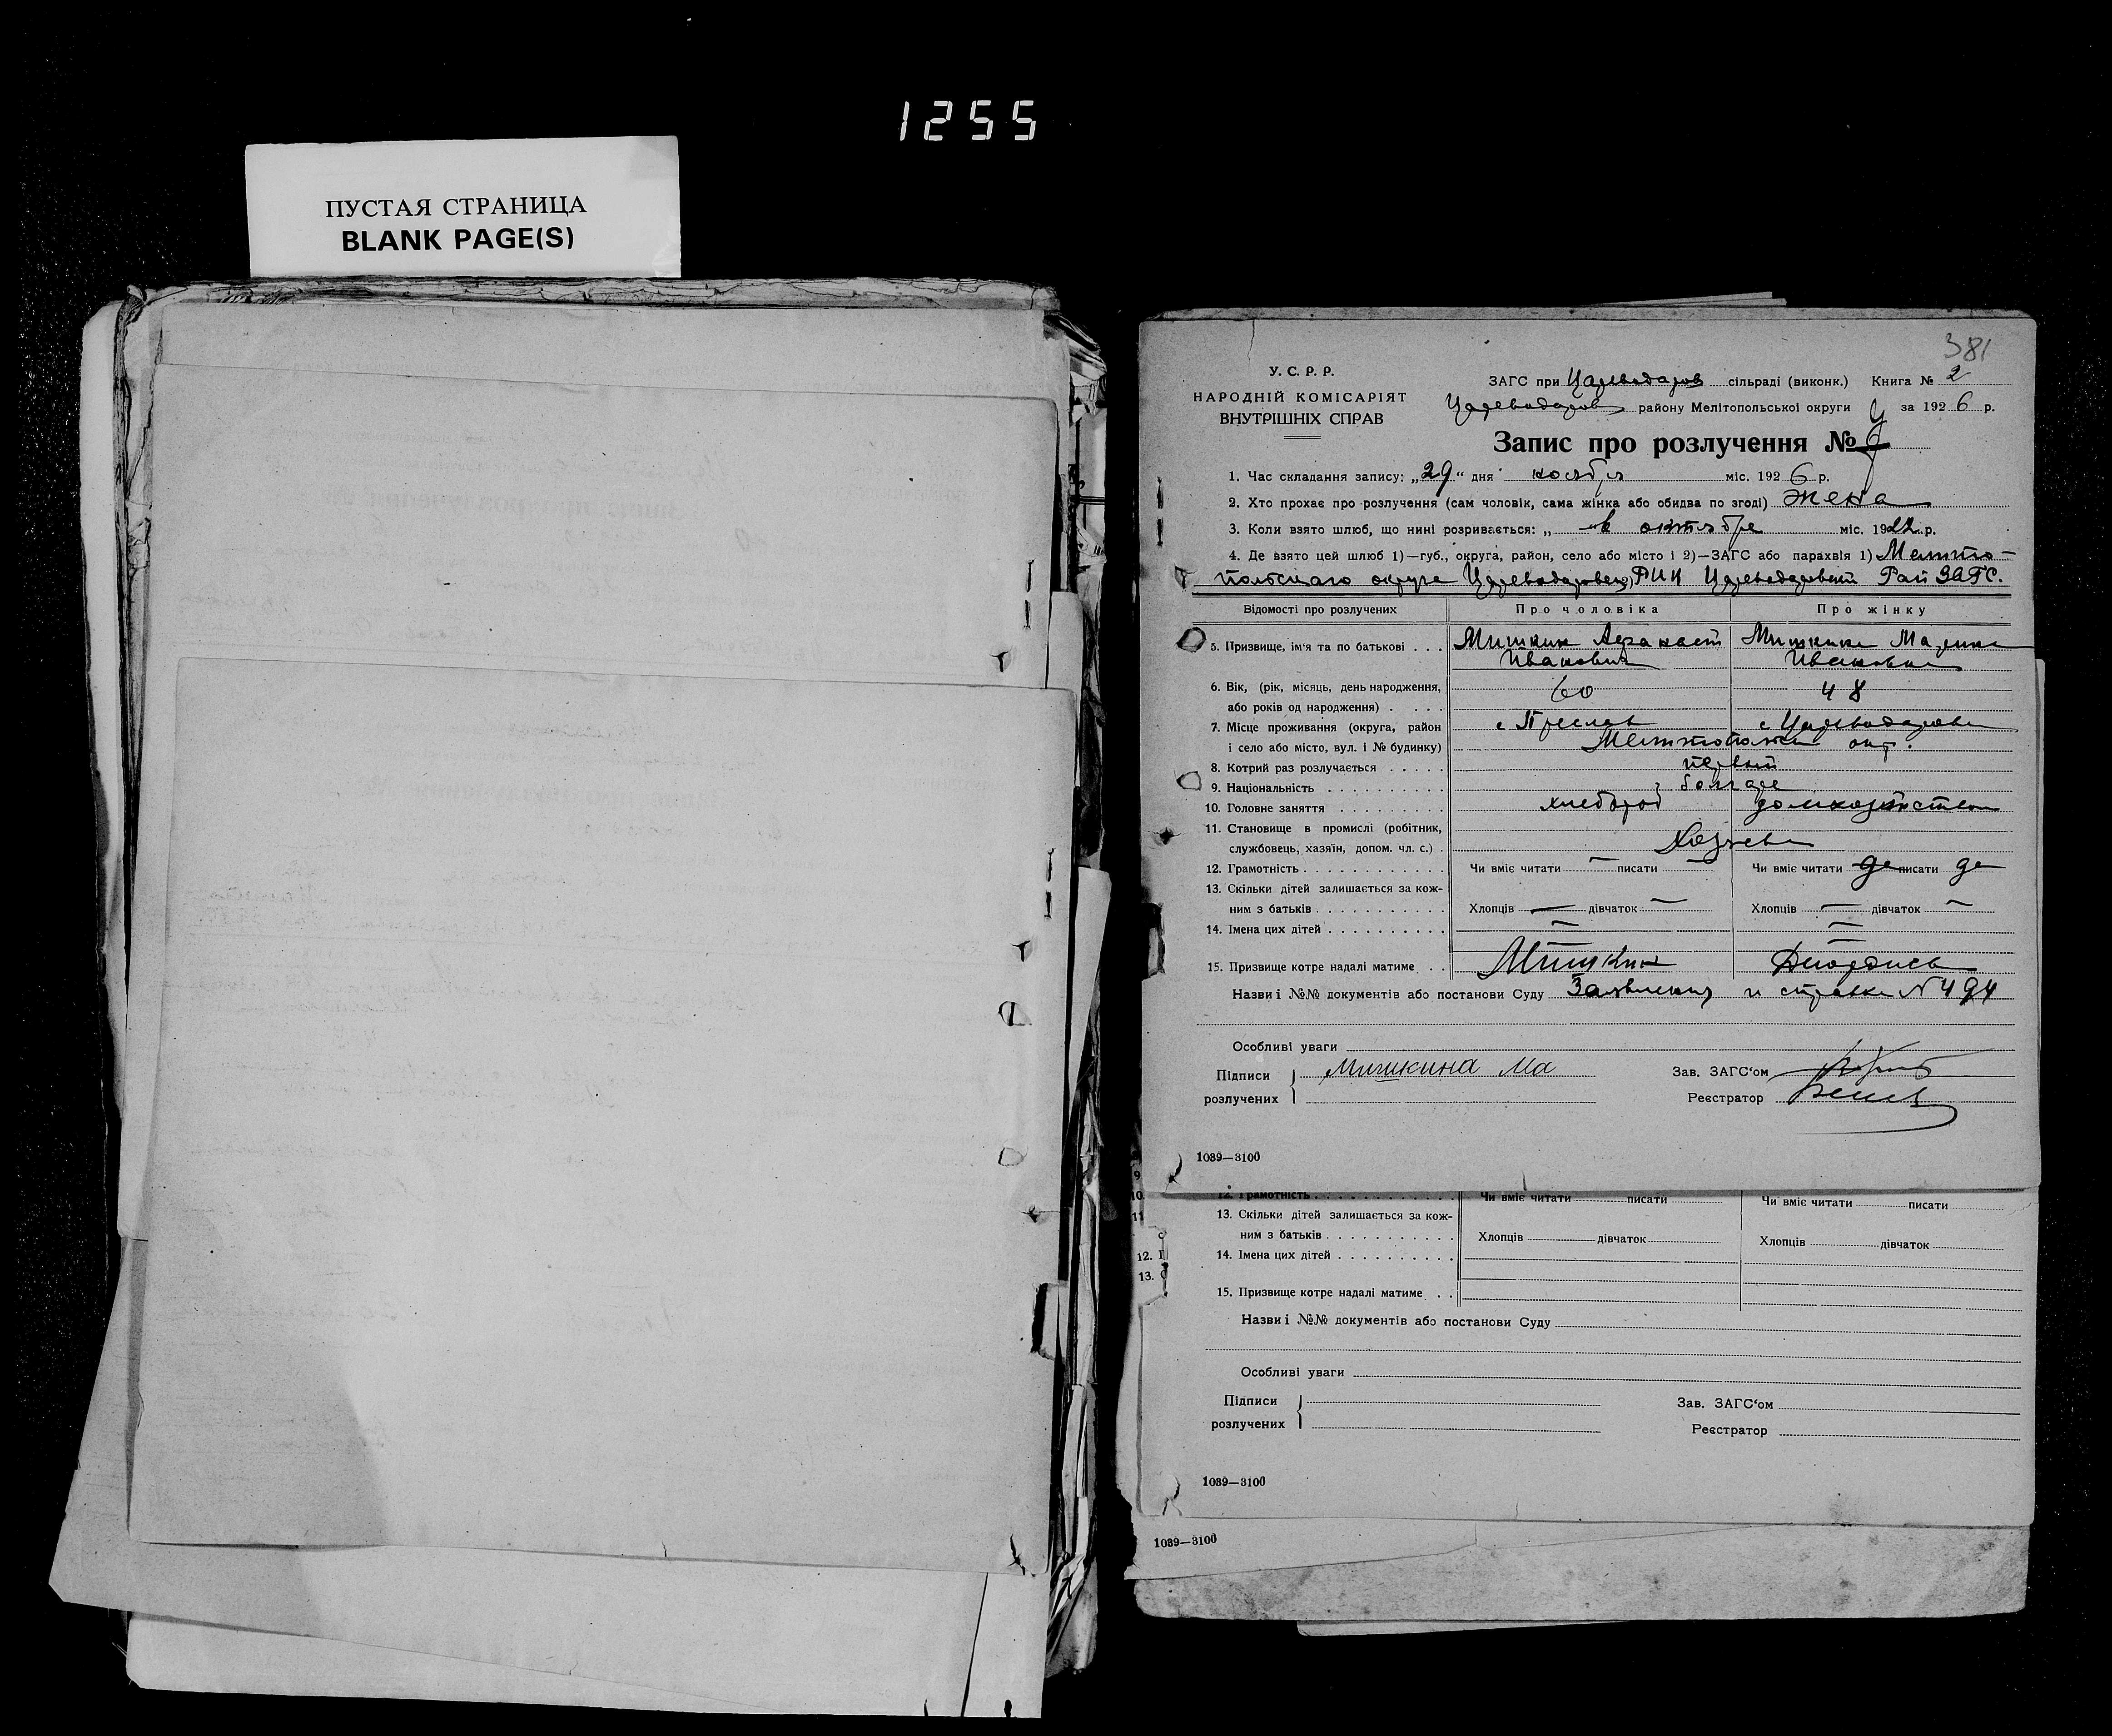 1255
ПУСТАЯ СТРАНИЦА
BLANK PAGE(S)
381
У. С. Р. Р.
НАРОДНІЙ КОМІСАРІЯТ
ВНУТРІШНІХ СПРАВ
ЗАГС при Цареводаров сільраді (виконк.) Книга № 2
Цареводаров району Мелітопольської округи за 1926 р.
Запис про розлучення №
1. Час складання запису: „29“ дня ноября міс. 1926 р.
2. Хто прохає про розлучення (сам чоловік, сама жінка або обидва по згоді) жена
3. Коли взято шлюб, що нині розривається: „ в октябре міс. 1922 р.
4. Де взято цей шлюб 1)—губ., округа, район, село або місто і 2)—ЗАГС або парахвія 1) Мелито-
польскаго округа РИК Рай ЗАГС.
Відомості про розлучених Про чоловіка Про жінку
5. Призвище, ім'я та по батькові . . . Мишкин Мишкина
Иванович Ивановна
6. Вік, (рік, місяць, день народження, 60 48
або років од народження) . . . .
7. Місце проживання (округа, район с Преслав с Цареводаровка
і село або місто, вул. і № будинку) окр.
8. Котрий раз розлучається . . . . . первый
9. Національність . . . . . . . . . . болгаре
10. Головне заняття . . . . . . . . . хлебороб
11. Становище в промислі (робітник,
службовець, хазяїн, допом. чл. с.) . Хозяева
12. Грамотність . . . . . . . . . . . . Чи вміє читати — писати — Чи вміє читати да писати да
13. Скільки дітей залишається за кож-
ним з батьків . . . . . . . . . . . Хлопців — дівчаток — Хлопців — дівчаток —
14. Імена цих дітей . . . . . . . . . . — —
15. Призвище котре надалі матиме . . Мишкин
Назви і №№ документів або постанови Суду Заявления и справка №494
Особливі уваги
Підписи Мишкина Ма Зав. ЗАГС‘ом
розлучених Реєстратор
1089—3100
9
10
11
12. Грамотність . . . . . . . . . . . . Чи вміє читати писати Чи вміє читати писати
13. Скільки дітей залишається за кож-
ним з батьків . . . . . . . . . . . Хлопців дівчаток Хлопців дівчаток
12. Г
14. Імена цих дітей . . . . . . . . . .
13. С
15. Призвище котре надалі матиме . .
Назви і №№ документів або постанови Суду
Особливі уваги
Підписи Зав. ЗАГС‘ом
розлучених Реєстратор
1089—3100
1089—3100